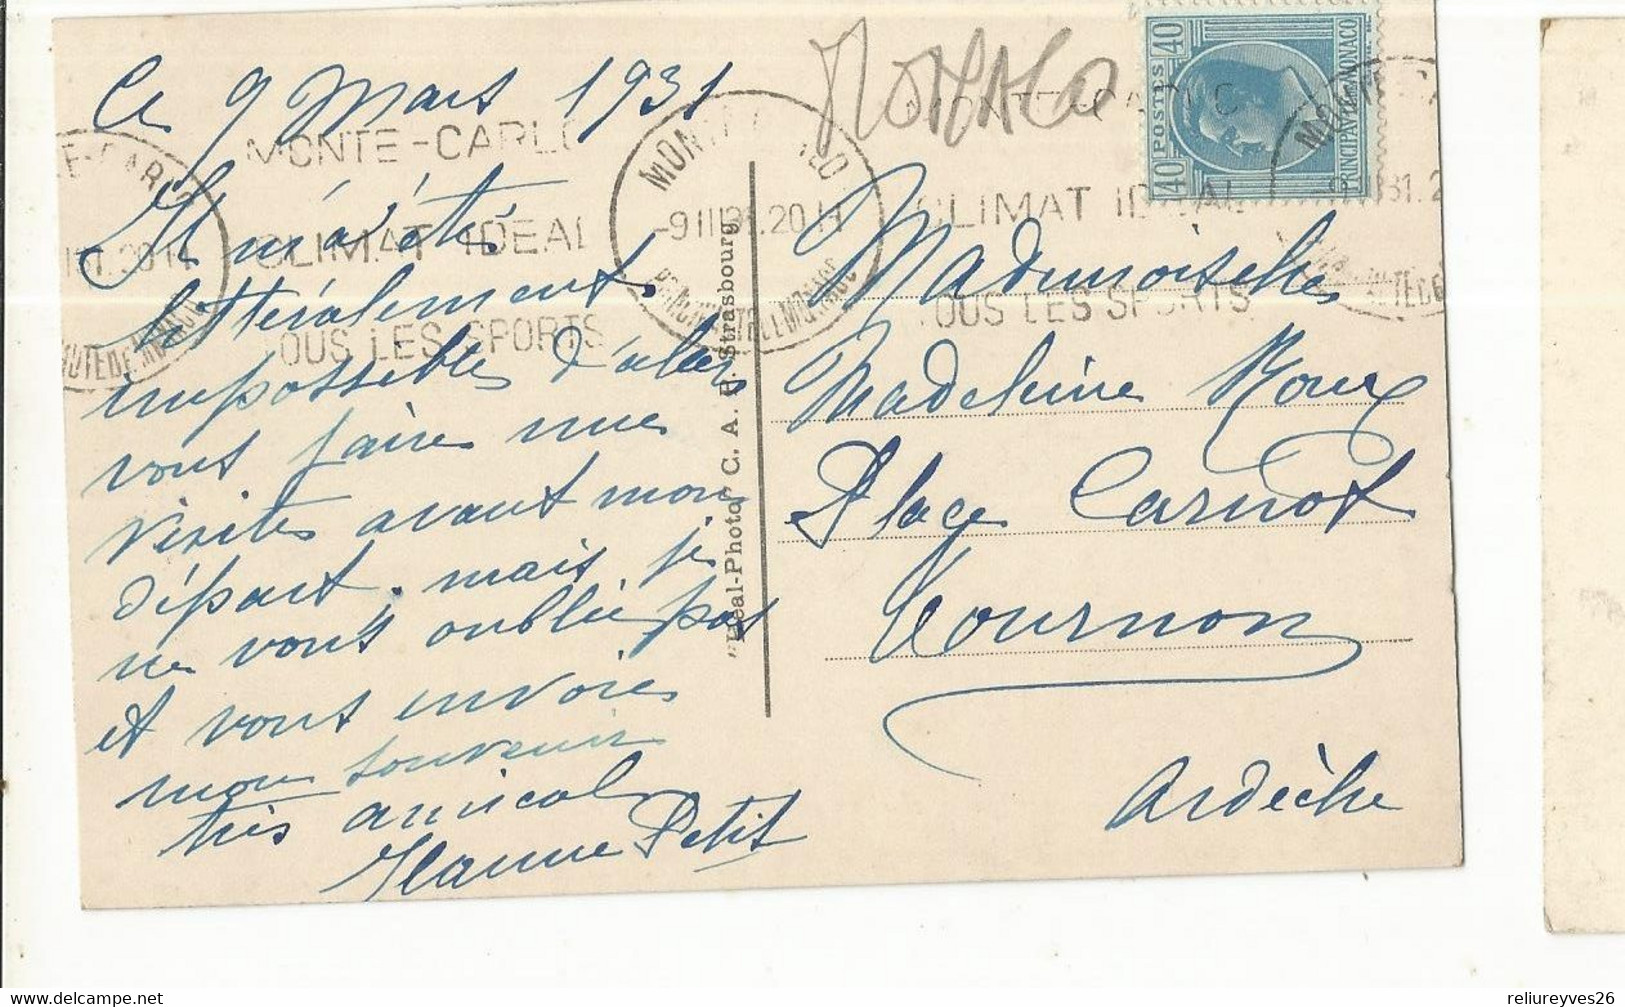 Le 9 Mars 1931
Il m'a été
littéralement
impossible d'aller
vous faire une
visite avant mon
départ. mais je
ne vous oublie pas
et vous envoie
mon souvenir
très amical
Jeanne Petit
MONTE-CARLO
CLIMAT IDEAL
TOUS LES SPORTS
-9 III 31.20 H
"Ideal-Photo" C. A. P. Strasbourg
MONACO
40 POSTES 40
PRINCIPAUTÉ DE MONACO
MONTE-CARLO
CLIMAT IDEAL
TOUS LES SPORTS
Mademoiselle
Madeleine Roux
Place Carnot
Tournon
Ardèche
reliureyves26